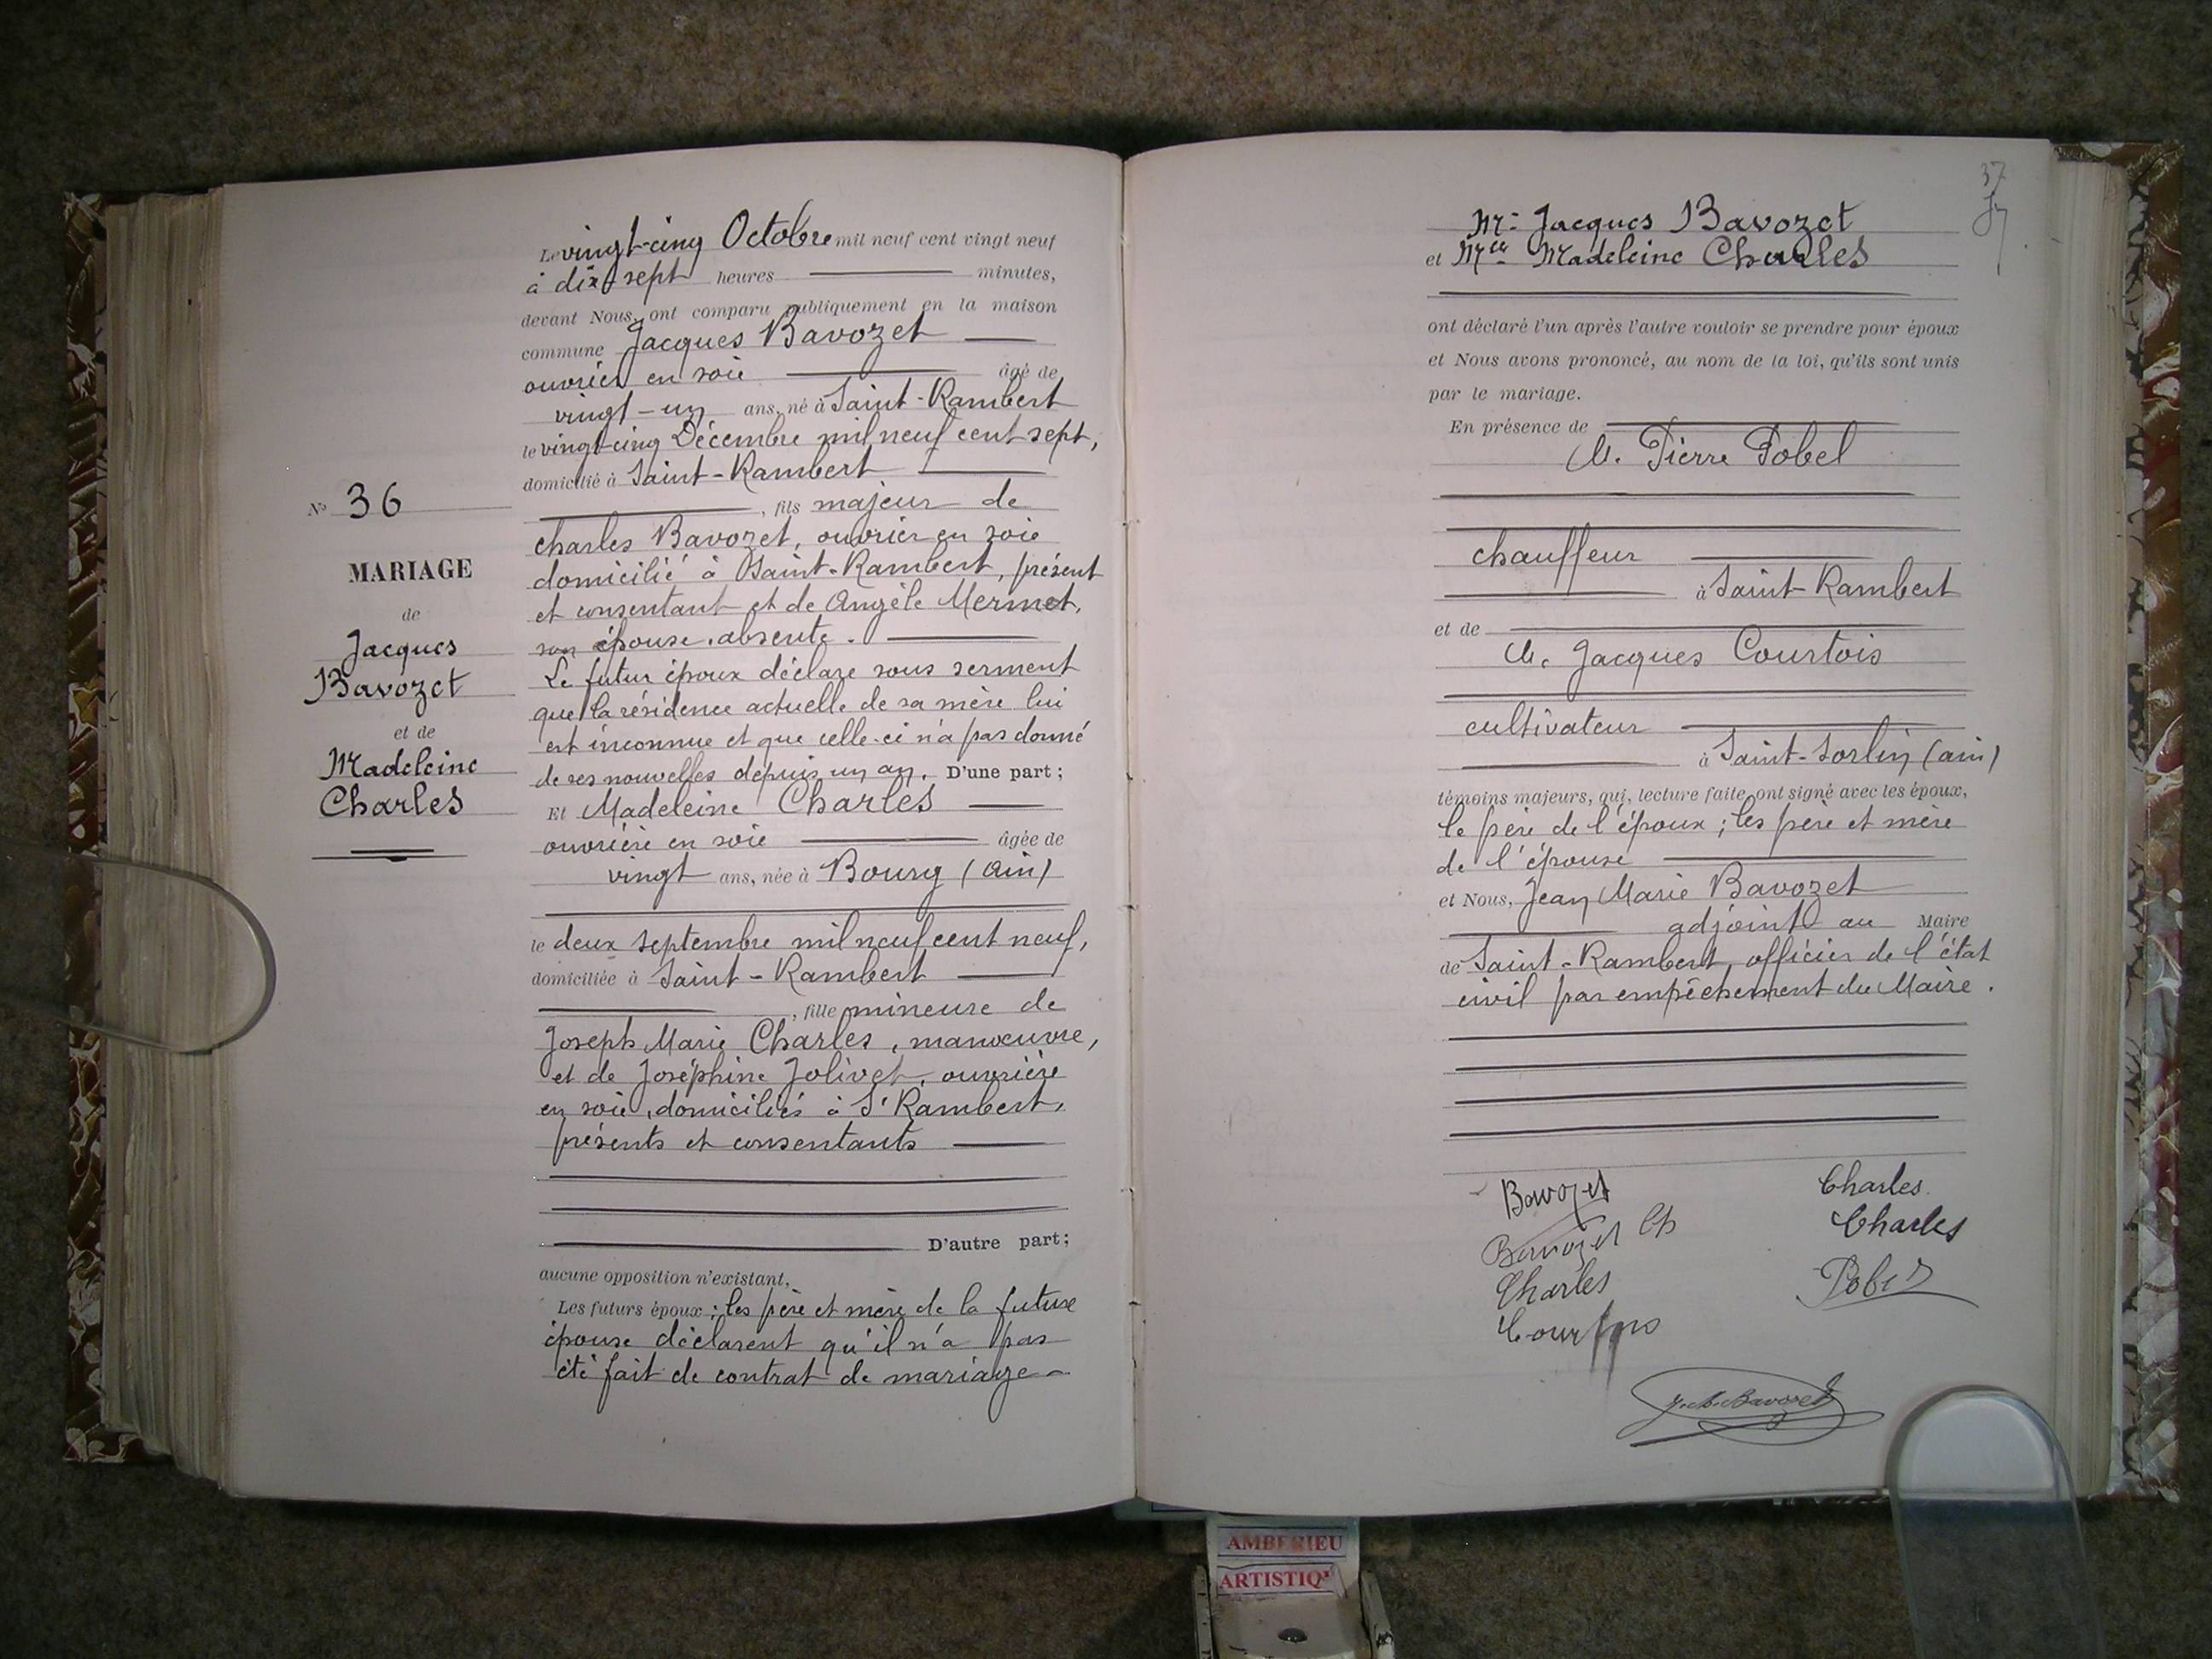 Le vingt-cinq Octobre mil neuf cent vingt neuf
à dix-sept heures minutes,
devant Nous, ont comparu publiquement en la maison
commune Jacques Bavozet
ouvrier en soie âgé de
vingt-un ans, né à Saint-Rambert
le vingt-cinq Décembre mil neuf cent sept,
domicilié à Saint-Rambert
, fils majeur de
charles Bavozet, ouvrier en soie
domicilié à Saint-Rambert, présent
et consentant et de Angèle Mermet,
son épouse, absente.
Le futur époux déclare sous serment
que la résidence actuelle de sa mère lui
est inconnue et que celle-ci n'a pas donné
de ses nouvelles depuis un an. D'une part ;
Et Madeleine Charles
ouvrière en soie âgée de
vingt ans, née à Bourg (Ain)
le deux septembre mil neuf cent neuf,
domiciliée à Saint-Rambert
, fille mineure de
Joseph Marie Charles, manœuvre,
et de Joséphine Jolivet, ouvrière
en soie, domiciliés à St Rambert,
présents et consentants
D'autre part ;
aucune opposition n'existant,
Les futurs époux ; les père et mère de la future
épouse déclarent qu'il n'a pas
été fait de contrat de mariage
No 36
MARIAGE
de
Jacques
Bavozet
et de
Madeleine
Charles
37
Mr Jacques Bavozet
et Melle Madeleine Charles
ont déclaré l'un après l'autre vouloir se prendre pour époux
et Nous avons prononcé, au nom de la loi, qu'ils sont unis
par le mariage.
En présence de
M. Pierre Pobel
chauffeur
à Saint-Rambert
et de
M. Jacques Courtois
cultivateur
à Saint-Sorlin (ain)
témoins majeurs, qui, lecture faite, ont signé avec les époux,
le père de l'époux ; les père et mère
de l'épouse
et Nous, Jean Marie Bavozet
adjoint au Maire
de Saint-Rambert, officier de l'état
civil par empêchement du Maire.
Bavozet
Charles
Bavozet Ch
Charles
Charles
Pobel
Courtois
J.M. Bavozet
AMBERIEU
ARTISTIQ